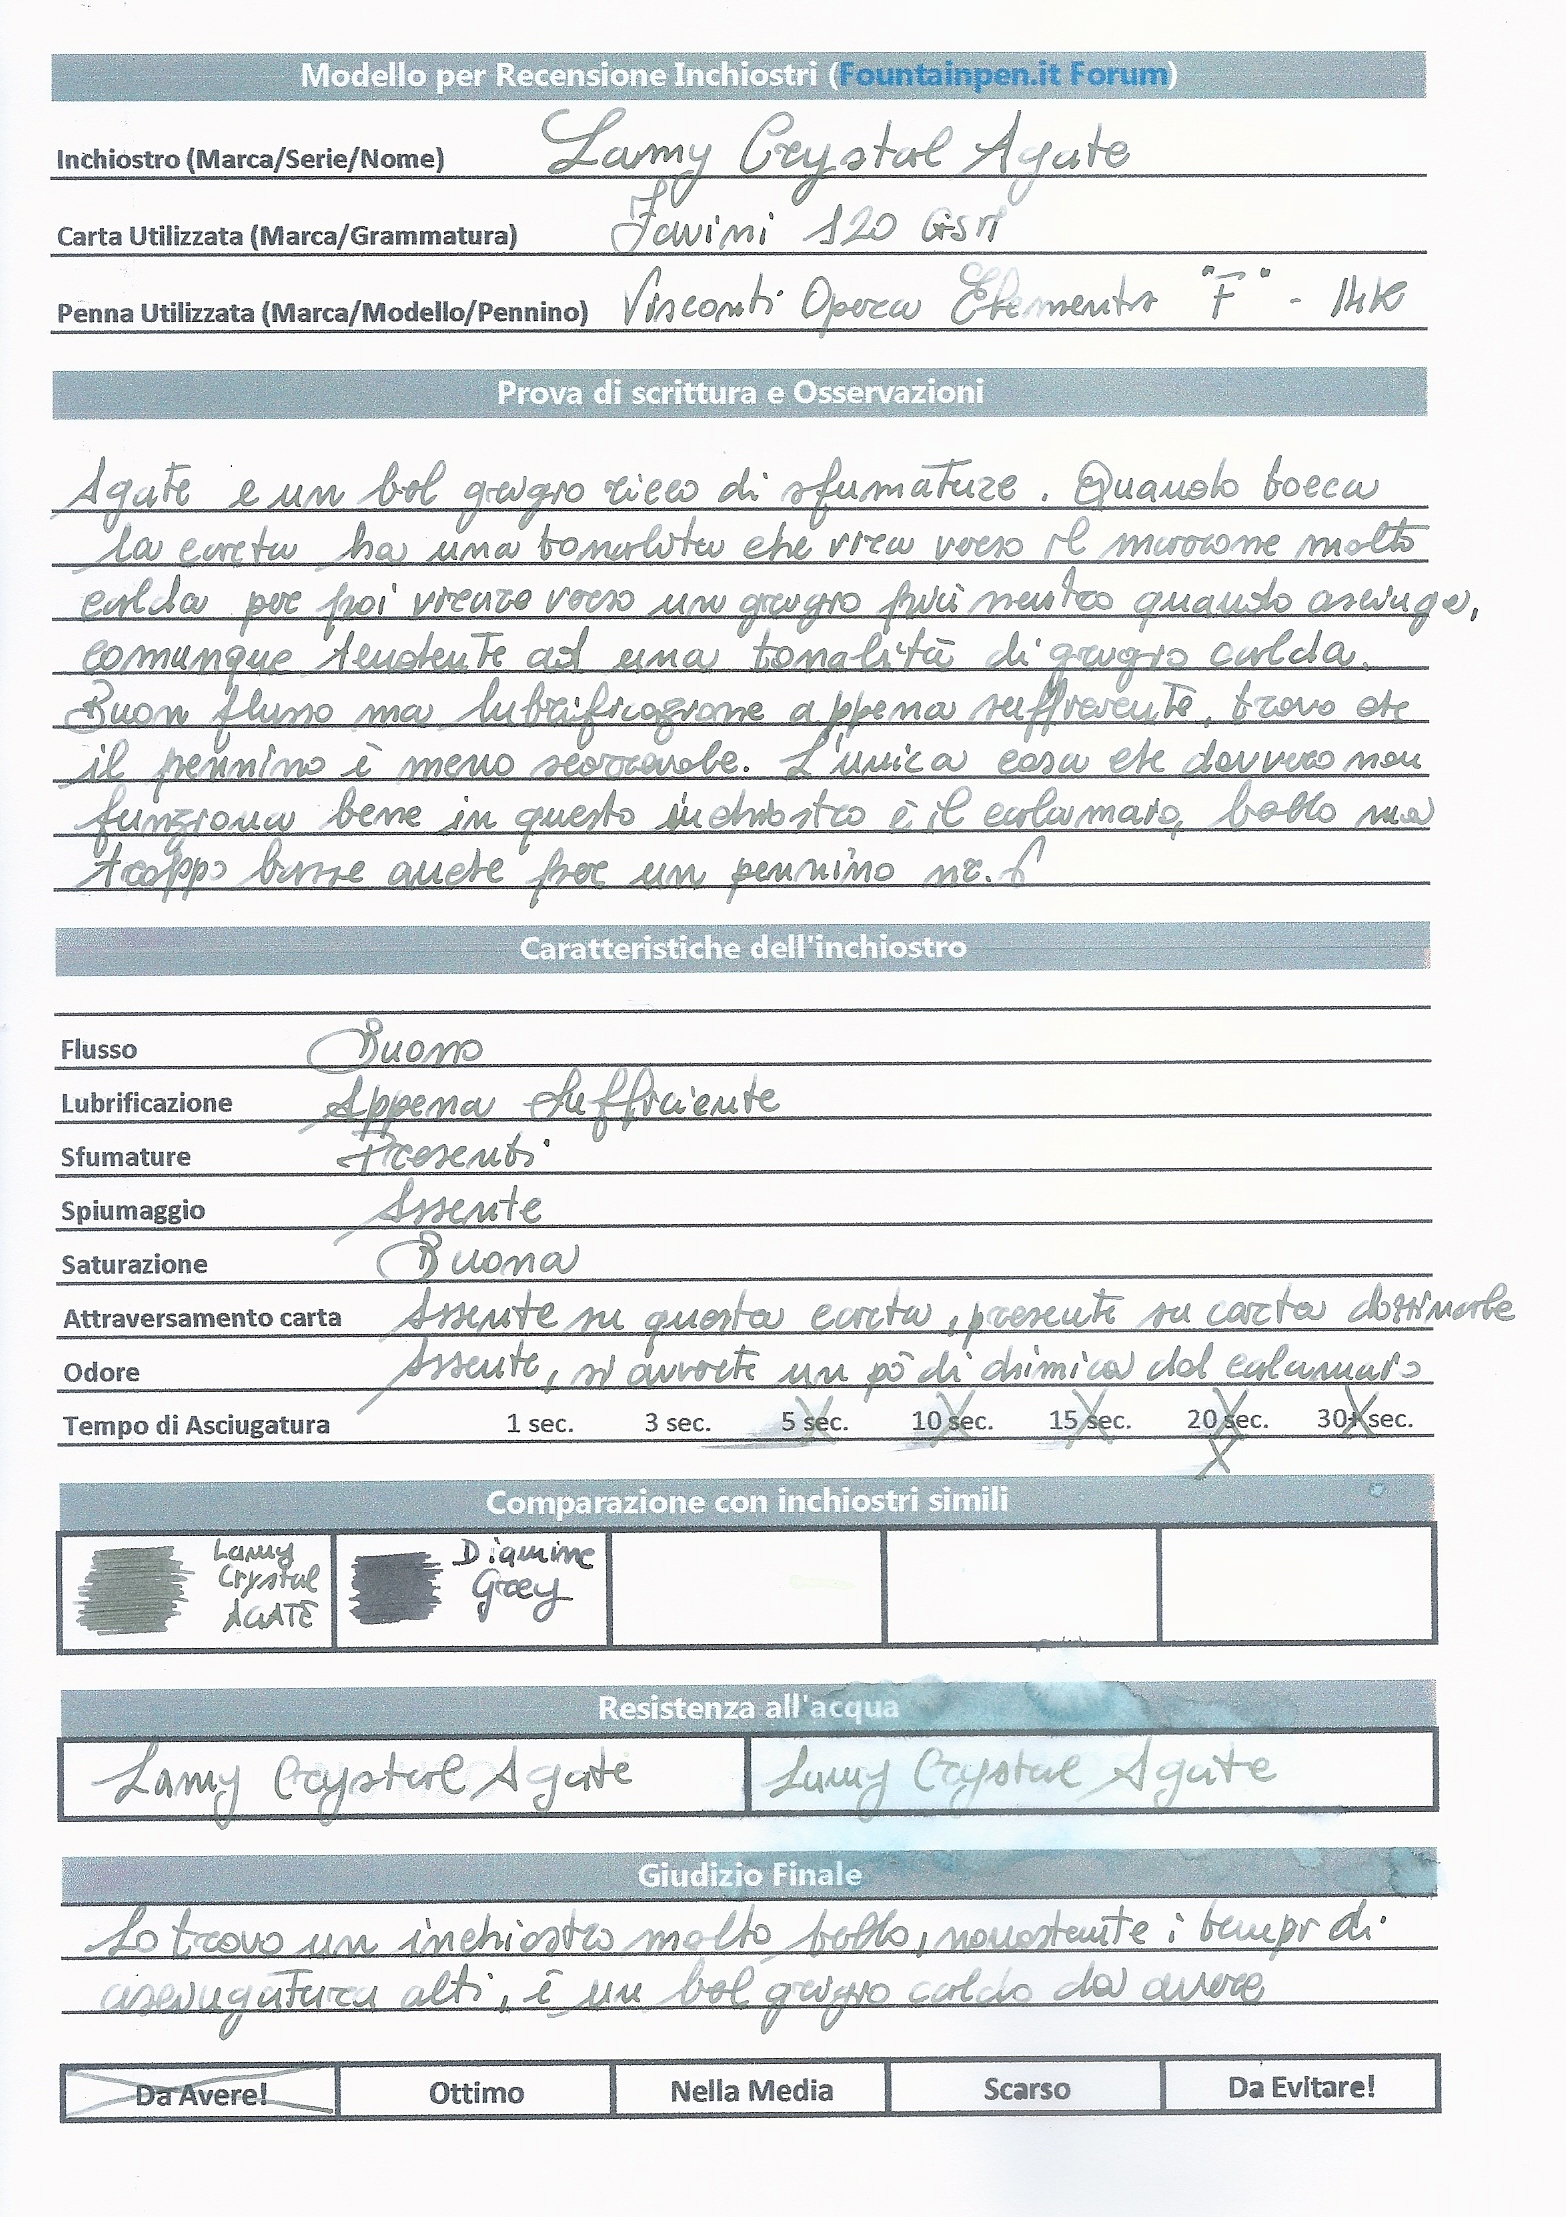 Modello per Recensione Inchiostri (Fountainpen.it Forum)
Inchiostro (Marca/Serie/Nome) Lamy Crystal Agate
Carta Utilizzata (Marca/Grammatura) Favini 120 GSM
Penna Utilizzata (Marca/Modello/Pennino) Visconti Opera Elements "F" - 14K
Prova di scrittura e Osservazioni
Agate e un bel grigio ricco di sfumature. Quando tocca
la carta ha una tonalita che vira verso il marrone molto
calda per poi virare verso un grigio più neutro quando asciuga,
comunque tendente ad una tonalità di grigio calda.
Buon flusso ma lubrificazione appena sufficiente, trovo che
il pennino è meno scorrevole. L'unica cosa che davvero non
funziona bene in questo inchiostro è il calamaio, bello ma
troppo basso anche per un pennino nr. 6
Caratteristiche dell'inchiostro
Flusso Buono
Lubrificazione Appena Sufficiente
Sfumature Presenti
Spiumaggio Assente
Saturazione Buona
Attraversamento carta Assente su questa carta, presente su carta dozzinale
Odore Assente, si avverte un pò di chimica dal calamaio
Tempo di Asciugatura 1 sec. 3 sec. 5 sec. 10 sec. 15 sec. 20 sec. 30+ sec.
Comparazione con inchiostri simili
Lamy Crystal AGATE
Diamine Grey
Resistenza all'acqua
Lamy Crystal Agate Lamy Crystal Agate
Giudizio Finale
Lo trovo un inchiostro molto bello, nonostante i tempi di
asciugatura alti, è un bel grigio caldo da avere
Da Avere! Ottimo Nella Media Scarso Da Evitare!